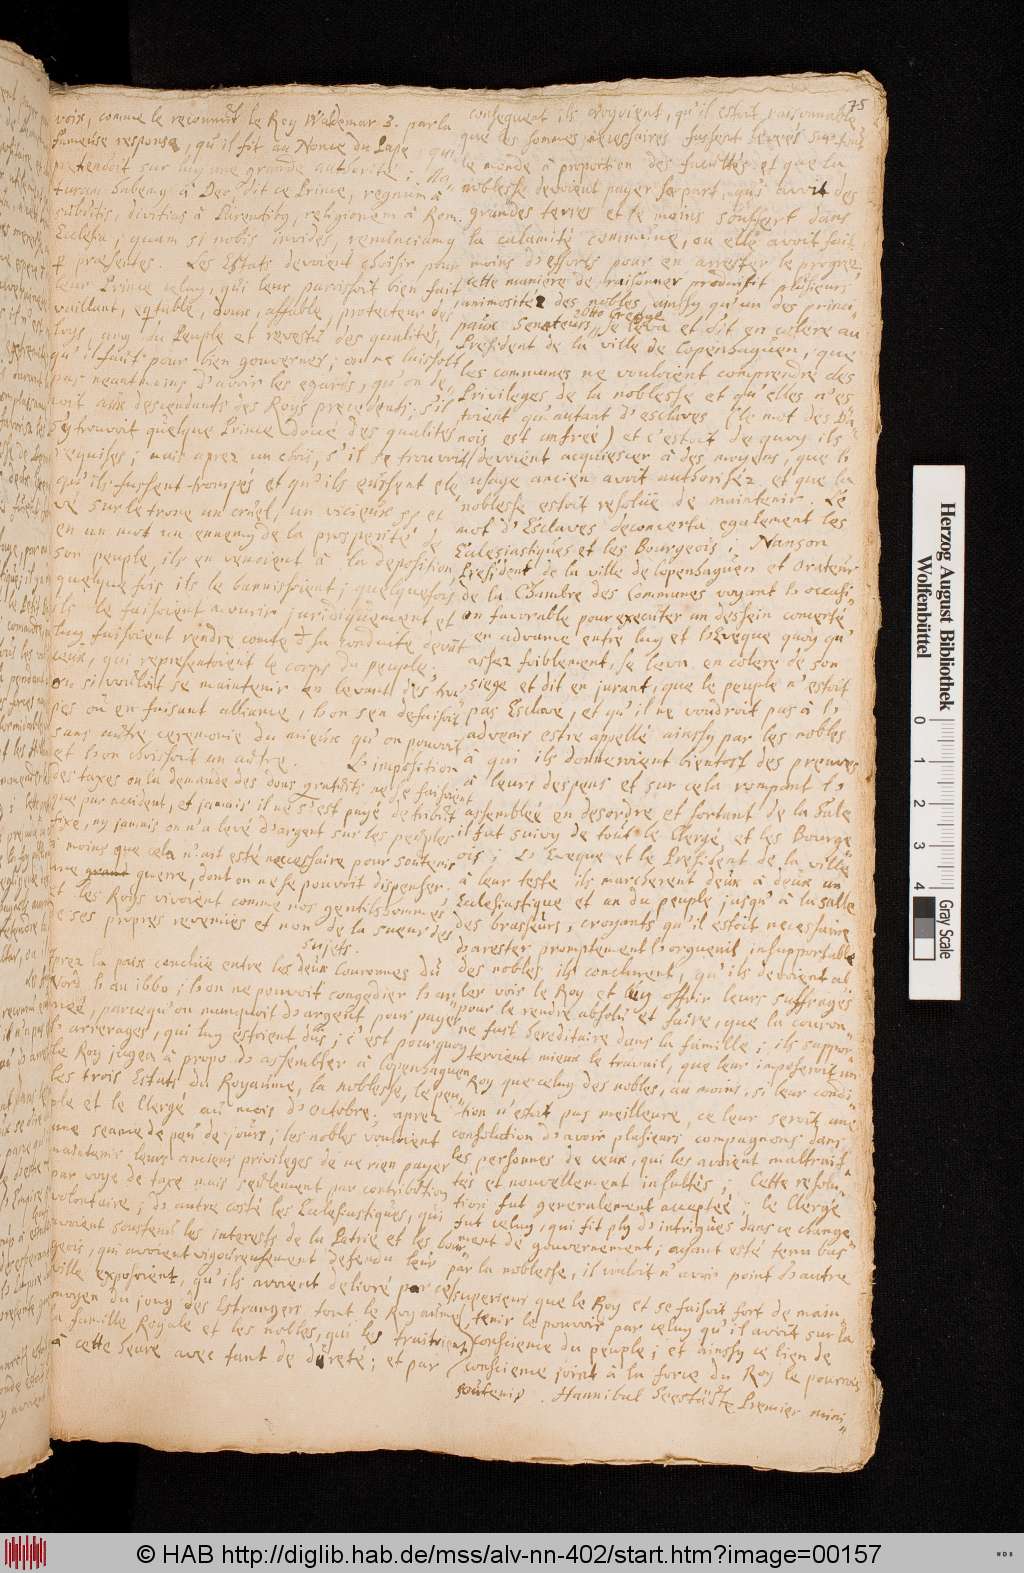 75
voix, comme le reconnût le Roy Waldemar 3. par la
fameuse response, qu'il fit au Nonce du Pape, qui
pretendoit sur luy une grande authorité: Na,,
turam habemg à Deo, dit ce Prince, regnum à
subditis, divitias à Parentibg, religionem à Rom.
Ecclesia; quam si nobis invides, renunciamg
p præsentes. Les Estats devoient choisir pour
leur Prince celuy, qui leur paroissoit bien fait
vaillant, eqtable, doux, affable, protecteur des
loys, du Peuple et revestu des qualités,
qu'il faut pour bien gouverner; on ne laissoit
pas neantmoins d'avoir les egards, qu'on de,,
voit aux descendants des Roys precedents; s'il
s'y trouvoit quelque Prince doué des qualités
requises; mais aprez un choix, s'il se trouvoit
qu'ils fussent trompés et qu'ils eussent ele
vé sur le trone un cruel, un vicieux et
en un mot un ennemy de la prosperité de
son peuple, ils en venoient à la deposition
quelque fois ils le bannissoient, quelquefois
ils le faisoient mourir juridiquement et
luy faisoient rendre conte de sa conduite devãt
ceux, qui representoient le corps du peuple.
ou s'il vouloit se maintenir en levant des trou
pes ou en faisant alliance, l'on s'en defaisoit
sans autre ceremonie du mieux qu'on pouvoit
et l'on choisissoit un autre. L'imposition
des taxes ou la demande des dons gratuits ne se faisoient
que par accident, et jamais il ne s'est payé de tribut
fixe, ny jamais on n'a levé d'argent sur les peuples
à moins que cela n'ait esté necessaire pour soutenir
une guerre, dont on ne se pouvoit dispenser.
et les Roys vivoient comme nos gentilshommes
de ses propres revenües et non de la sueur des
sujets.
Aprez la paix conclüe entre les deux Couronnes du
Nord l'an 1660; l'on ne pouvoit congedier l'ar,,
mée, parcequ'on manquoit d'argent pour payer
l'arrerages, qui luy estoient düs; c'est pourquoy
le Roy jugea à propo d'assembler à Copenhaguen
les trois Estats du Royaume, la noblesse, le peu,,
ple et le Clergé au mois d'octobre. aprez
une seance de peu de jours; les nobles vouloient
maintenir leurs anciens privileges de ne rien payer
par voye de taxe mais seulement par contribution
volontaire; d'autre costé les Ecclesiastiques, qui
avoient soustenu les interests de la Patrie et les bour
geois, qui avoient vigoureusement defendu leur
ville exposoient, qu'ils avoient delivré par ce
moyen du joug des Estrangers tout le Royaume,
la famille Royale et les nobles, qui les traitoient
à cette heure avec tant de dureté; et par
consequent ils croyoient, qu'il estoit raisonnable
que les sommes necessaires fussent levées sur tout
le monde à proportion des facultés et que la
noblesse devoient payer sa part, qui avoit des
grandes terres et le moins souffert dans
la calamité commune, ou elle avoit fait
moins d'efforts pour en arrester le progrez,
cette maniere de raisonner produisit plusieurs
animositéz des nobles, ainssy qu'un des princi,,
Otto Craege
paux Senateurs, se leva et dit en colere au
President de la ville de Copenhaguen, que
les communes ne vouloient comprendre les
Privileges de la noblesse et qu'elles n'es
toient qu'autant d'esclaves (le mot des Da,,
nois est unfreé) et c'estoit de quoy ils
devoient acquiescer à des moyens, que l'
usage ancien avoit authorisez, et que la
noblesse estoit resolüe de maintenir. Le
mot d'Esclaves deconcerta egalement les
Eculesiastiques et les Bourgeois; Nanson
President de la ville de Copenhaguen et Orateur
de la Chambre des Communes voyant l'occasi,,
on favorable pour executer un dessein concerté
en advance entre luy et l'Eveque quoy qu'
assez foiblement, se leva en colere de son
siege et dit en jurant, que le peuple n'estoit
pas Esclave, et qu'il ne voudroit pas à l'
advenir estre appellé ainssy par les nobles
à qui ils donneroient bientost des preuves
à leurs despens et sur cela rompant l'
assemblée en desordre et sortant de la Sale
il fut suivy de tout le Clergé et les Bourge
ois; L'Eveque et le President de la ville
à leur teste ils marcherent deux à deux un
Ecclesiastique et un du peuple jusqu'à la salle
des brasseurs, croyants qu'il estoit necessaire
d'arester promptement l'orgueuil insupportable
des nobles, ils conclurent, qu'ils devoient al
ler vois le Roy et luy offrir leurs suffrages
pour le rendre absolu et faire, que la couron,,
ne fust hereditaire dans la famille; ils suppor,,
teroient mieux le travail, que leur imposeroit un
Roy que celuy des nobles, au moins, si leur condi,,
tion n'estoit pas meilleure, ce leur seroit une
consolution d'avoir plusieurs compagnons dans
les personnes de ceux, qui les avoient maltrait,,
tés et nouvellement insultés; Cette resolu,,
tion fut generalement acceptée; le Clergé
fut celuy, qui fit plg d'intrigues dans ce change
ment de gouvernement; ayant esté tenu bas
par la noblesse, il valoit n'avoir point d'autre
superieur que le Roy et se faisoit fort de main,,
tenir le pouvoir par celuy qu'il avoit sur la
conscience du peuple; et ainssy ce lien de
conscience joint à la force du Roy le pourroit
soutenir. Hannibal Seestädt Premier mini,,
Herzog August Bibliothek
Wolfenbüttel
0 1 2 3 4
Gray Scale
© HAB http://diglib.hab.de/mss/alv-nn-402/start.htm?image=00157